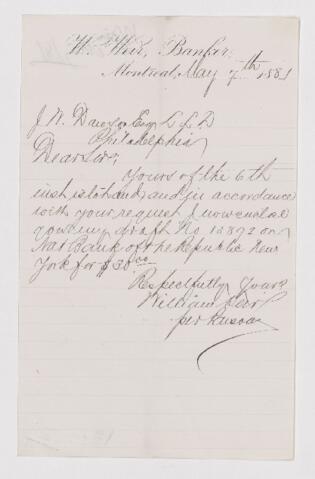 W. Weir, Banker,
Montreal, May 7th 1881
J. W. Dawson Esq L.L.D
Philadelphia
Dear Sir,
Yours of the 6th
inst is to hand and in accordance
with your request I now enclose
you my draft No 12892 on
Nat Bank of the Republic New
York for $30.00
Respectfully Yours
William Weir
per